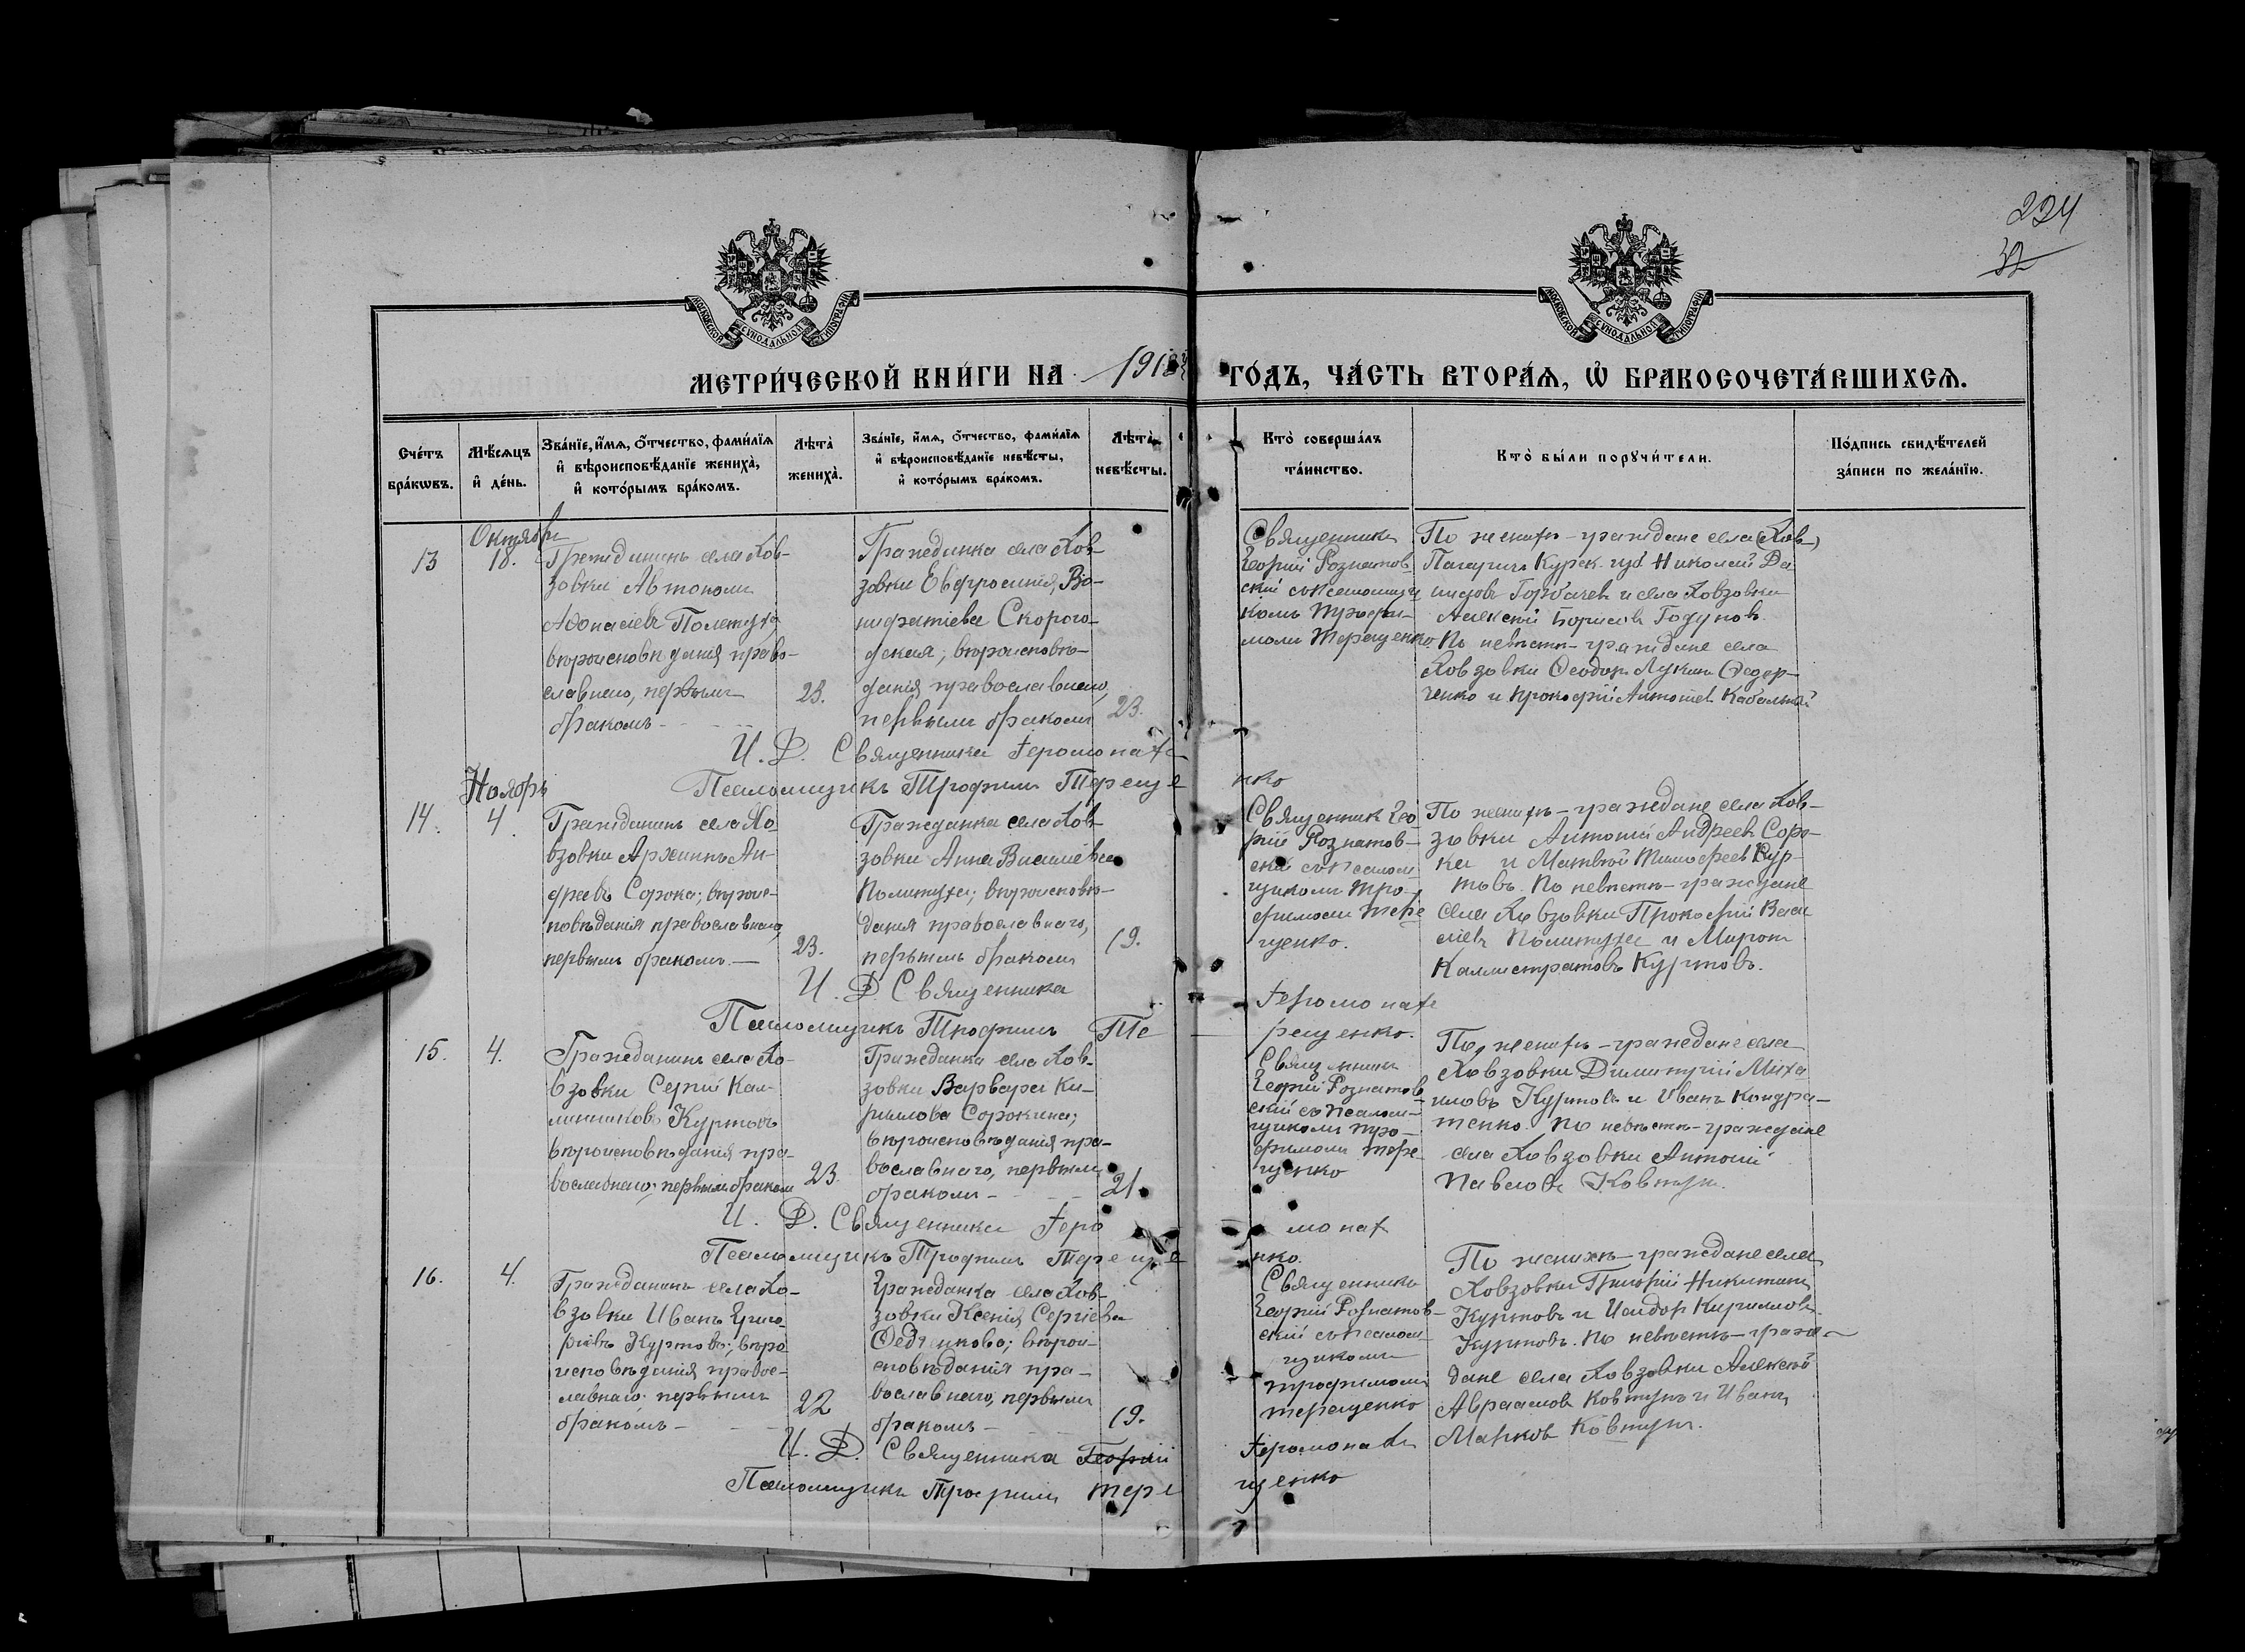 224
32
МОСКОВСКОЙ СѴНОДАЛЬНОЙ ТИПОГРАФІИ
МОСКОВСКОЙ СѴНОДАЛЬНОЙ ТИПОГРАФІИ
МЕТРИ́ЧЕСКОЙ КНИ́ГИ НА 1918 ГО́ДЪ, ЧА́СТЬ ВТОРА́Ѧ, Ѡ҆ БРАКОСОЧЕТА́ВШИХСѦ.
Сче́тъ бра́кѡвъ.
Мѣ́сѧцъ и҆ де́нь.
Зва́нїе, и҆́мѧ, ѻ҆́тчество, фами́лїѧ
и҆ вѣроисповѣ́данїе жениха̀,
и҆ кото́рымъ бра́комъ.
Лѣта̀ жениха̀.
Зва́нїе, и҆́мѧ, ѻ҆́тчество, фами́лїѧ
и҆ вѣроисповѣ́данїе невѣ́сты,
и҆ кото́рымъ бра́комъ.
Лѣта̀ невѣ́сты.
Кто̀ соверша́лъ
та́инство.
Кто̀ бы́ли порꙋчи́тели.
По́дпись свидѣ́телей
за́писи по жела́нїю.
Октябрь
13
18.
Гражданинъ села Ков-
зовки Автономъ
Афонасіевъ Полетуха
вѣроисповѣданія право-
славнаго, первымъ
бракомъ
23.
Гражданка села Ков-
зовки Евфросинія Во-
нифатіева Скорого-
дская; вѣроисповѣ-
данія православнаго,
первымъ бракомъ
23.
Священникъ
Георгій Рознатов-
скій съ псаломщи
комъ Трофи-
момъ Терещенко
По женихѣ - граждане села
Курск. губ Николай Да
Горбачев и села Ковзовки
Алексѣй Борисовъ Годуновъ.
По невѣстѣ - граждане села
Ковзовки Ѳеодоръ Лукинъ Федор-
ченко и Прокофій
И. Д. Священника Іеромонахъ
Псаломщикъ Трофимъ Тереще нко
Ноябрь
14.
4.
Гражданинъ села Ко-
взовки Архипъ Ан-
дреевъ Сорока; вѣроис-
повѣданія православнаго,
первымъ бракомъ. —
23.
Гражданка села Ков-
зовки Анна Василіева
Политуха; вѣроисповѣ-
данія православнаго,
первымъ бракомъ
19.
Священник Гео
ргій Рознатов-
скій съ псалом
щикомъ Тро-
фимомъ Тере
щенко.
По женихѣ - граждане села Ков-
зовки Антоній Андреевъ Соро-
ка и Матвѣй Тимофеев Кур-
товъ. По невѣстѣ - граждане
села Ковзовки Прокофій Васи
ліевъ Политуха и Миронъ
Каллистратовъ Куртовъ.
И. Д. Священника Іеромонахъ
Псаломщикъ Трофимъ Те рещенко.
15.
4.
Гражданинъ села Ко-
взовки Сергій Кал-
линиковъ Куртовъ
вѣроисповѣданія пра-
вославнаго, первымъ бракомъ
23.
Гражданка села Ков-
зовки Варвара Ки-
рилова Сорокина;
вѣроисповѣданія пра-
вославнаго, первымъ
бракомъ -
21.
Священникъ
Георгій Рознатов-
скій съ псалом-
щикомъ Тро-
фимомъ Тере-
щенко
По женихѣ - граждане села
Ковзовки Димитрій Миха
иловъ Куртовъ и Иванъ Кондра-
тенко. По невѣстѣ - граждане
села Ковзовки Антоній
Павловъ Ковтунъ.
И. Д. Священника Іеро монах
Псаломщикъ Трофимъ Тереще нко.
16.
4.
Гражданинъ села Ко-
взовки Иванъ Григо-
ріевъ Куртовъ; вѣро
исповѣданія правос-
лавнаго первымъ
бракомъ -
22
Гражданка села Ков-
зовки Ксенія Сергіева
вѣрои-
сповѣданія пра-
вославнаго, первымъ
бракомъ -
19.
Священникъ
Георгій Рознатов-
скій съ псалом-
щикомъ
Трофимомъ
Терещенко
По женихѣ - граждане села
Ковзовки Григорій Никитинъ
Куртовъ и Исидор Кириловъ
Куртовъ. По невѣстѣ - граж-
дане села Ковзовки Алексѣй
Авраамов Ковтунъ и Иванъ
Марков Ковтунъ.
И. Д. Священника Георгій Іеромонахъ
Псаломщикъ Трофимъ Тере щенко